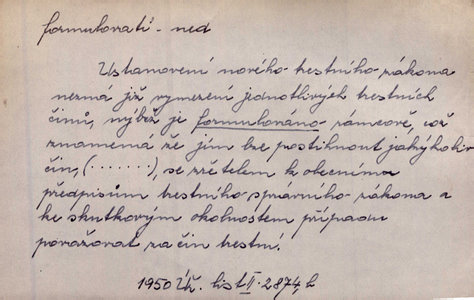 formulovati - ned
Ustanovení nového trestního zákona
nezná již vymezení jednotlivých trestních
činů, nýbrž je formulováno rámcově, což
znamená že jím lze postihnout jakýkoliv
čin, (.......), se zřetelem k obecnímu
předpisům trestního správního zákona a
ke skutkovým okolnostem případu
považovat za čin trestní.
1950 Úř. list II 2874, b